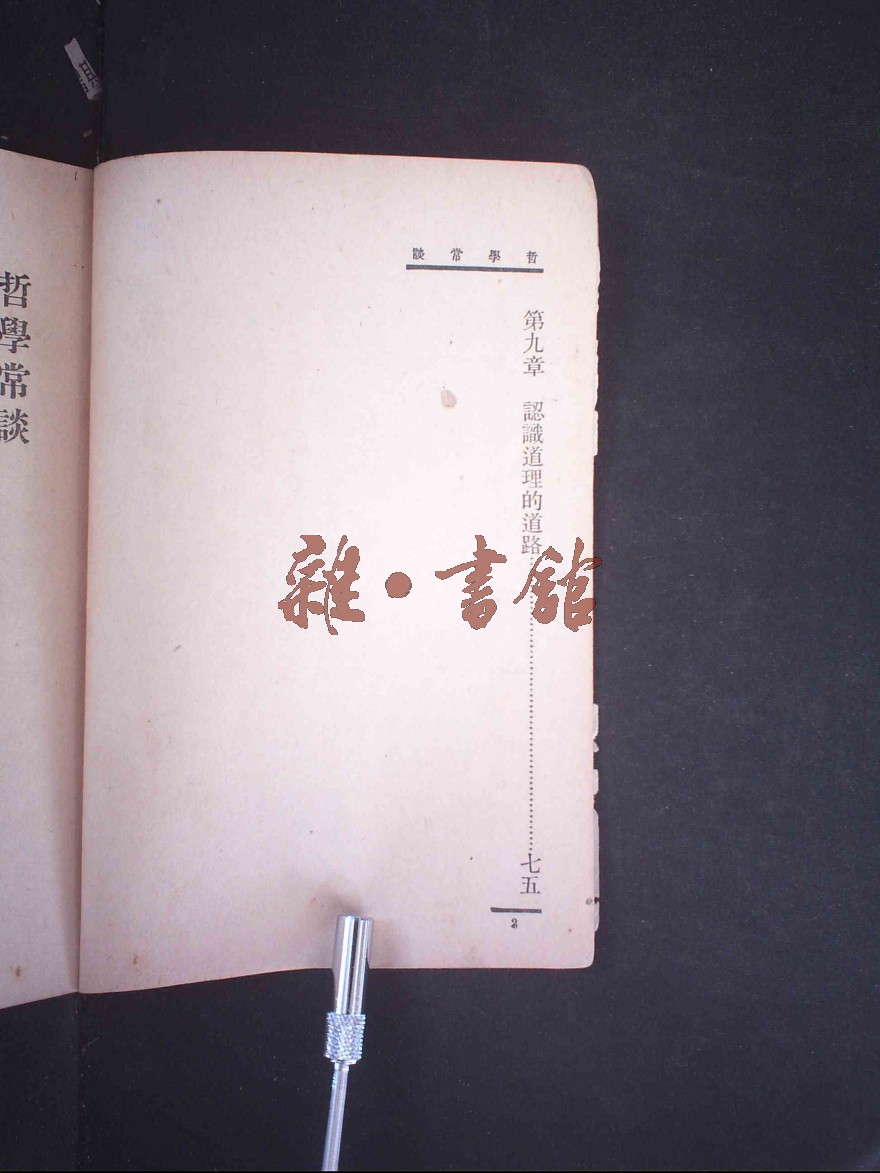 哲學常談
第九章　認識道理的道路……………………七五
2
哲學常談
雜•書館